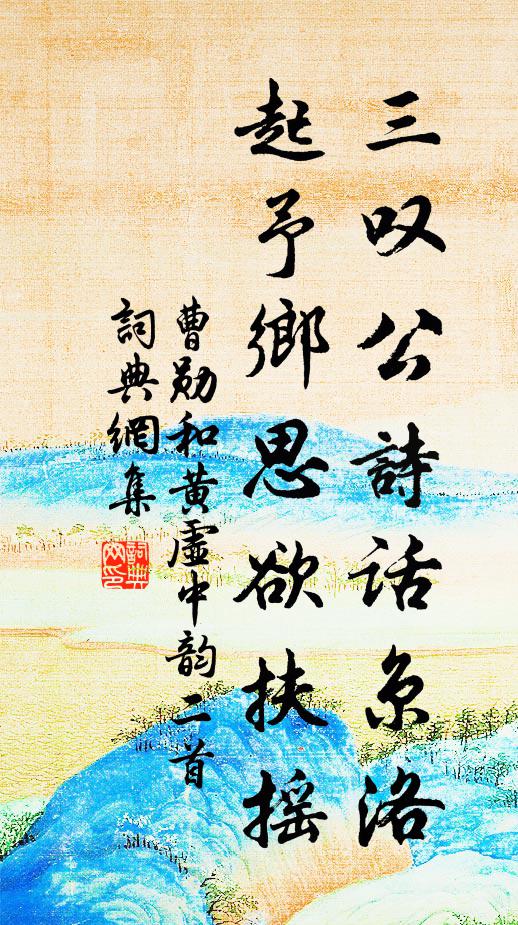 三叹公詩话京洛
起予鄉思欲扶摇
曹勋和黄虛中韵二首
詞典網集
詞典网印